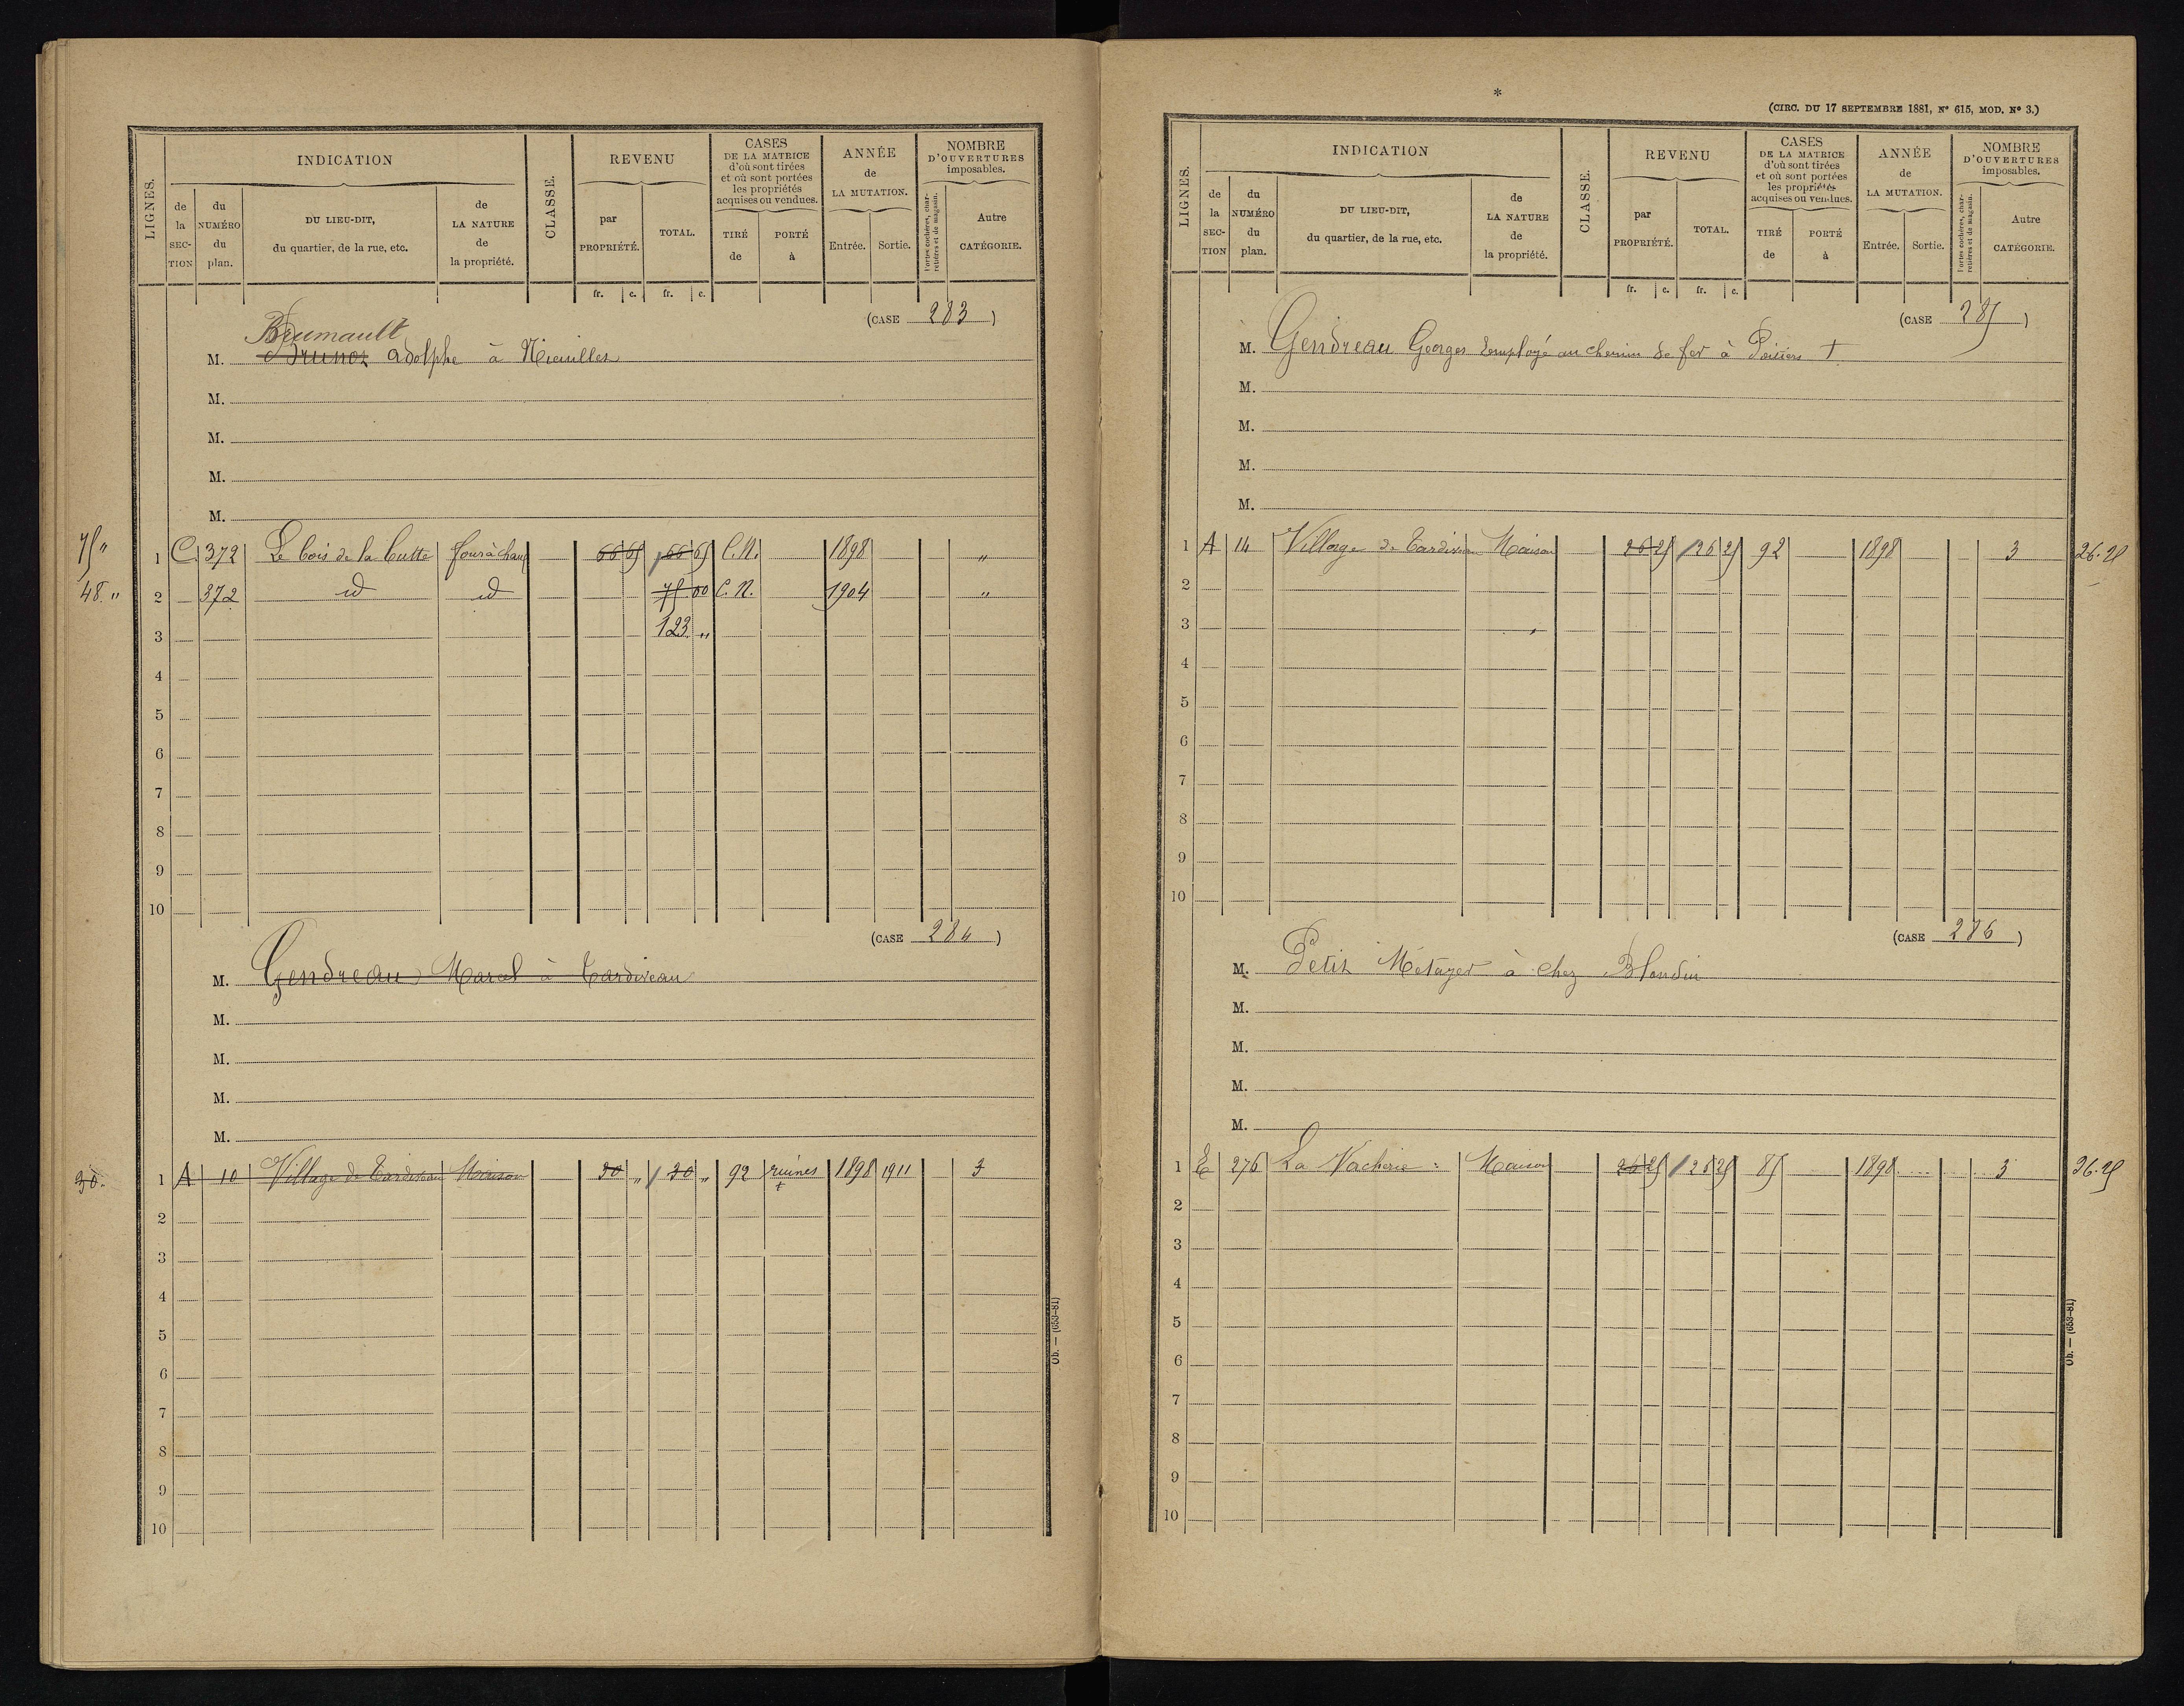 LIGNES.
INDICATION
de la SECTION
du NUMÉRO du plan.
DU LIEU-DIT, du quartier, de la rue, etc.
de LA NATURE de la propriété.
CLASSE.
REVENU
par PROPRIÉTÉ.
TOTAL.
CASES DE LA MATRICE d'où sont tirées et où sont portées les propriétés acquises ou vendues.
TIRÉ de
PORTÉ à
ANNÉE de LA MUTATION.
Entrée.
Sortie.
NOMBRE D'OUVERTURES imposables.
Portes cochères, charretières et de magasin.
Autre CATÉGORIE.
fr. c. fr. c.
(CASE 283)
Brumault
M. Adolphe à Nieuilles
M.
M.
M.
M.
75 " 1 C 372 Le bois de la butte four à chaux 66 65 66 65 C.N. 1898 "
48 " 2 372 id id 75 00 C.N. 1904 "
3 123 "
4
5
6
7
8
9
10
(CASE 284)
M. Gendreau Marcel à Tardiveau
M.
M.
M.
M.
30. 1 A 10 Village de Tardiveau Maison 30 " 30 " 92 ruines 1898 1911 3
2
3
4
5
6
7
8
9
10
Ob. — (653-81)
*
(CIRC. DU 17 SEPTEMBRE 1881, N° 615, MOD. N° 3.)
LIGNES.
INDICATION
de la SECTION
du NUMÉRO du plan.
DU LIEU-DIT, du quartier, de la rue, etc.
de LA NATURE de la propriété.
CLASSE.
REVENU
par PROPRIÉTÉ.
TOTAL.
CASES DE LA MATRICE d'où sont tirées et où sont portées les propriétés acquises ou vendues.
TIRÉ de
PORTÉ à
ANNÉE de LA MUTATION.
Entrée.
Sortie.
NOMBRE D'OUVERTURES imposables.
Portes cochères, charretières et de magasin.
Autre CATÉGORIE.
fr. c. fr. c.
(CASE 285)
M. Gendreau Georges Employé au chemin de fer à Poitiers +
M.
M.
M.
M.
1 A 14 Village de Tardiveau Maison 26 25 26 25 92 1898 3 26.25
2
3
4
5
6
7
8
9
10
(CASE 286)
M. Petit Métayer à chez Blondin
M.
M.
M.
M.
1 E 276 La Vacherie Maison 26 25 26 25 85 1898 3 26.25
2
3
4
5
6
7
8
9
10
Ob. — (653-81)